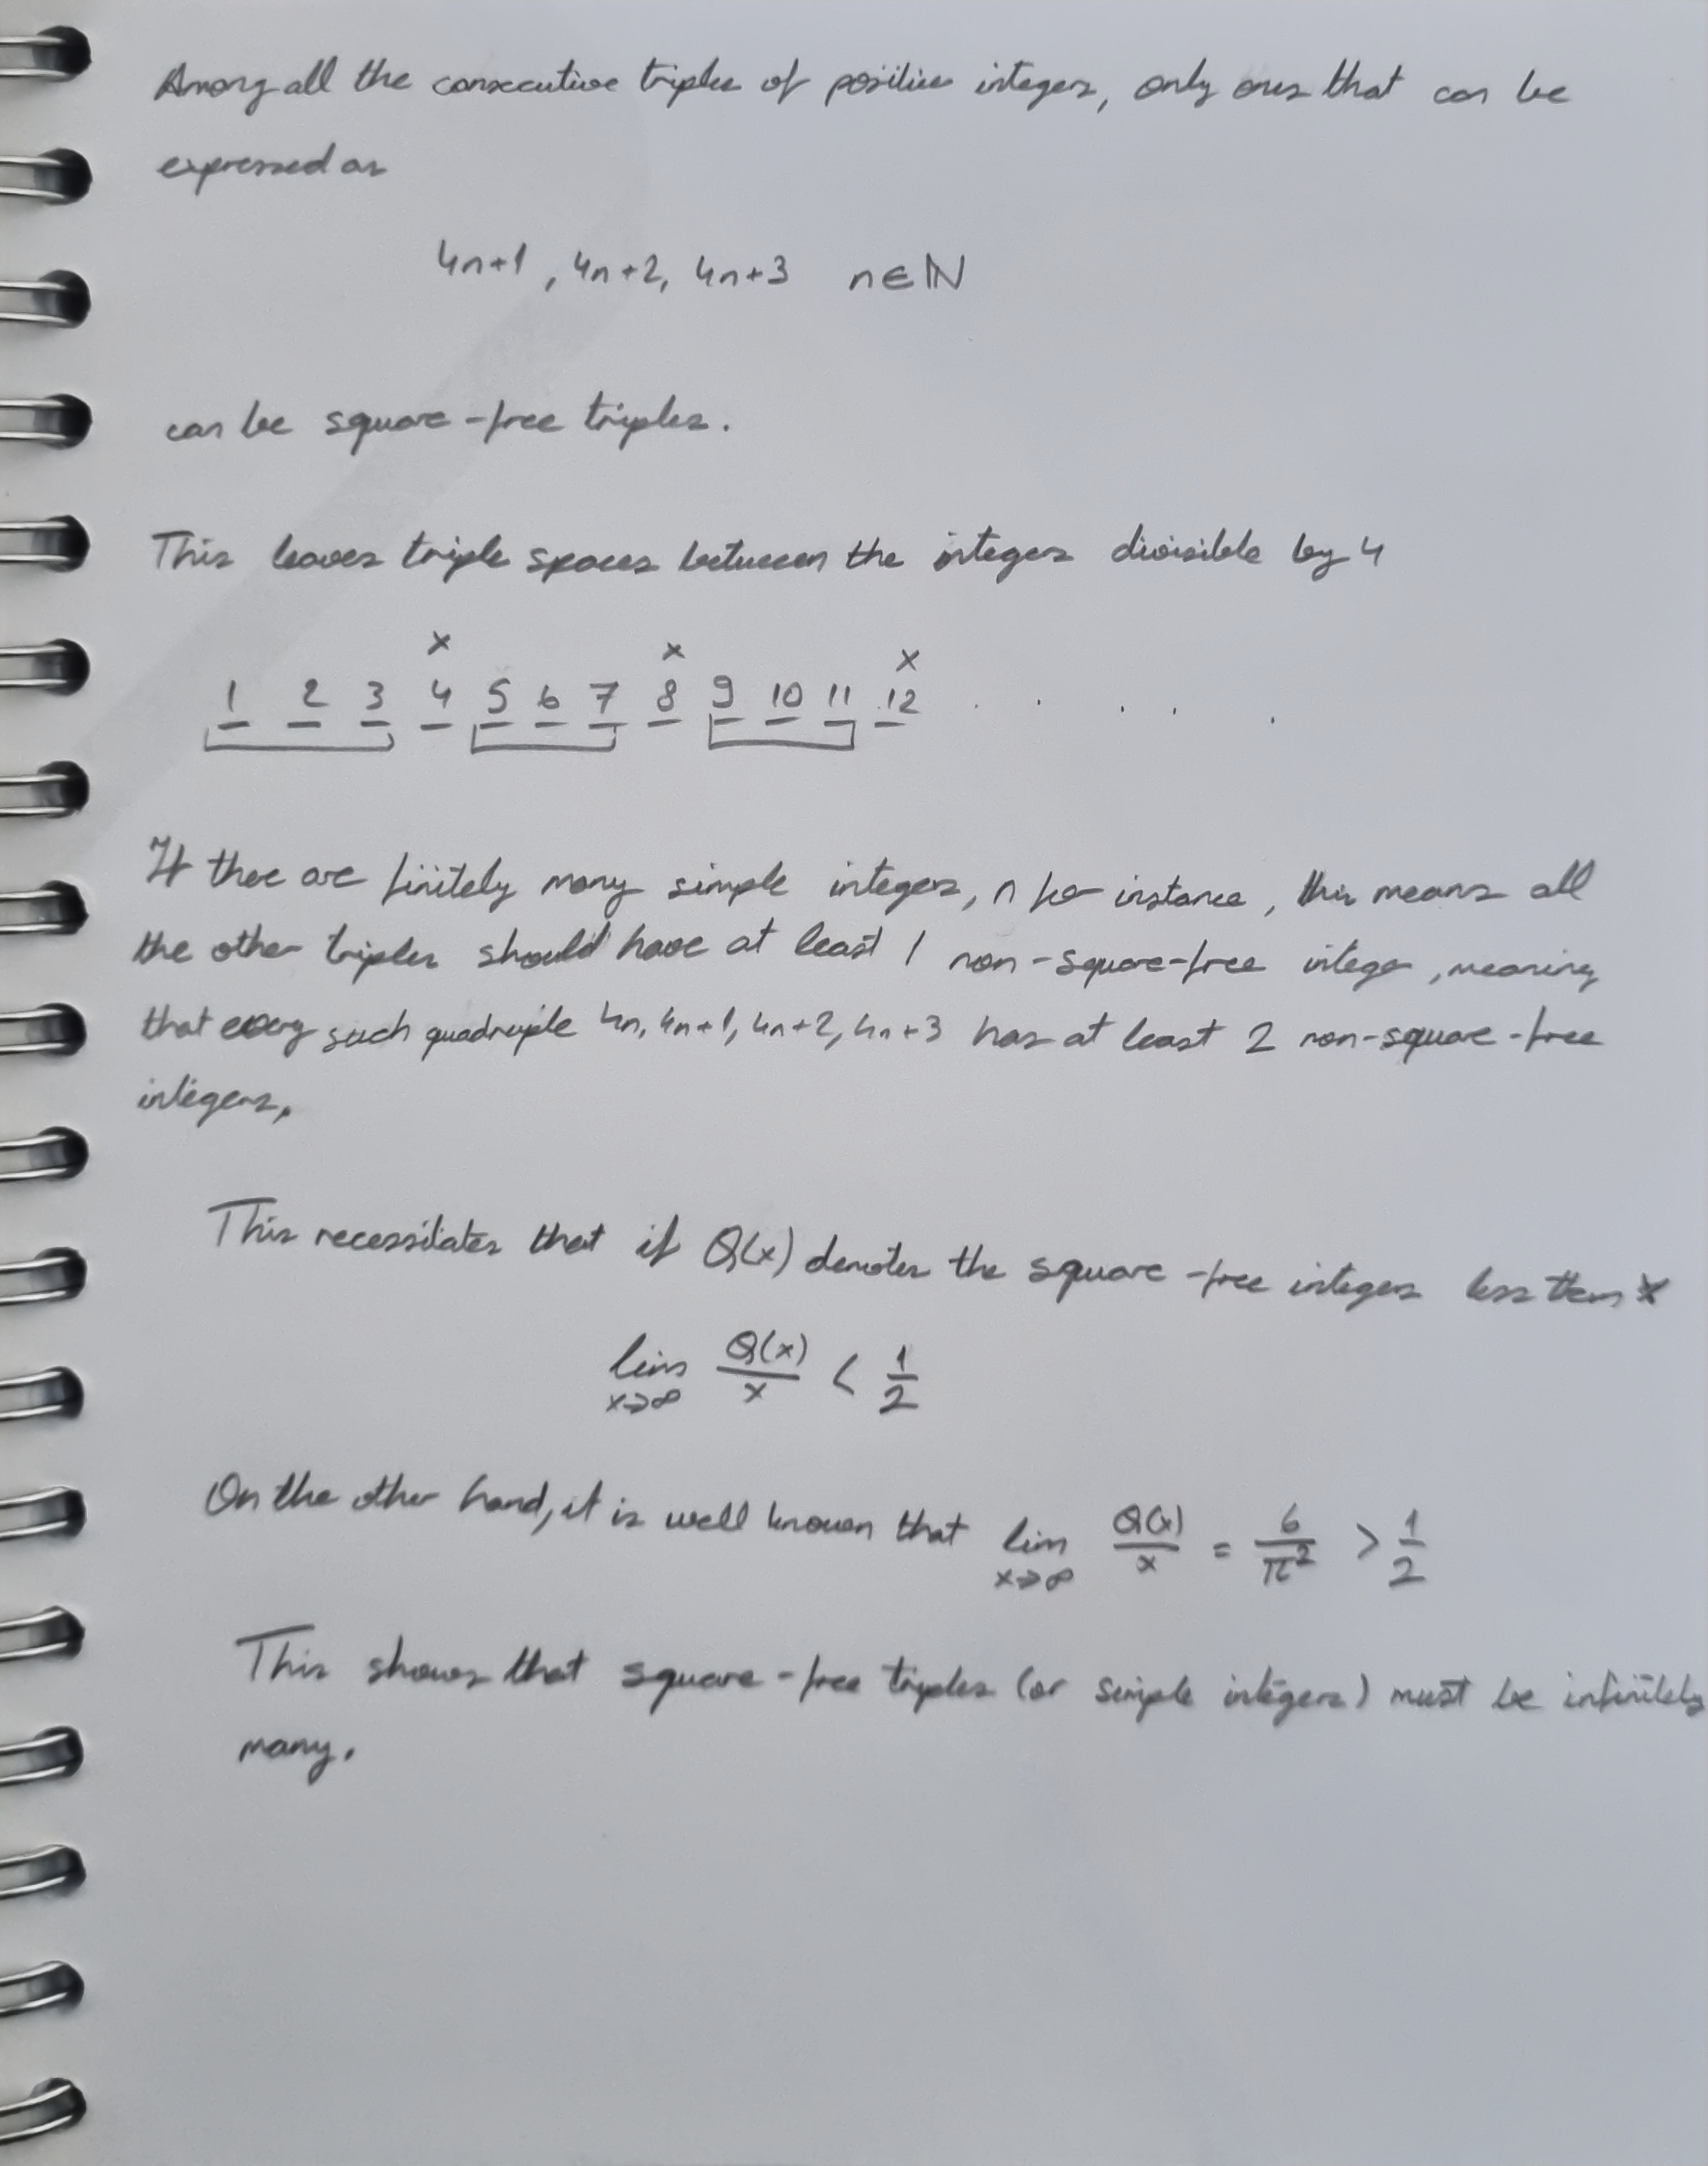 Among all the consecutive triples of positive integers, only ones that can be
expressed as
4n+1, 4n+2, 4n+3 n∈ℕ
can be square-free triples.
This leaves triple spaces between the integers divisible by 4
x x x
1 2 3 4 5 6 7 8 9 10 11 12 . . . . .
If there are finitely many simple integers, n for instance, this means all
the other triples should have at least 1 non-square-free integer, meaning
that every such quadruple 4n, 4n+1, 4n+2, 4n+3 has at least 2 non-square-free
integers.
This necessitates that if Q(x) denotes the square-free integers less than x
lim x→∞ Q(x)/x < 1/2
On the other hand, it is well known that lim x→∞ Q(x)/x = 6/π² > 1/2
This shows that square-free triples (or simple integers) must be infinitely
many.